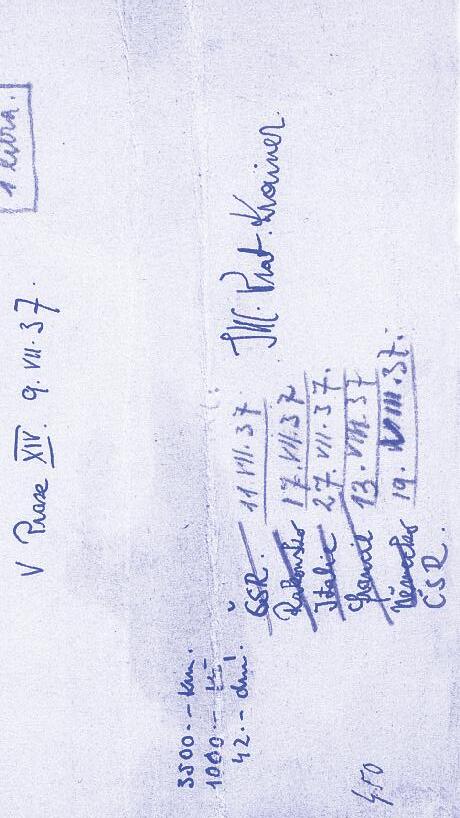 V Praze XIV. 9. VII. 37.
3500.- km.
1000.- Kč
42.- dní.
ČSR. 11 VII. 37
Rakousko 17. VII. 37
Italie 27. VII. 37.
Francie 13. VIII. 37
Německo 19. VIII. 37.
ČSR.
Krainer.
450